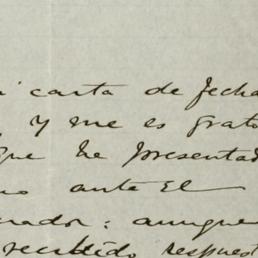 carta de fecha
y me es grato
que he presentad
ante El
rador: aunque
recibido respues